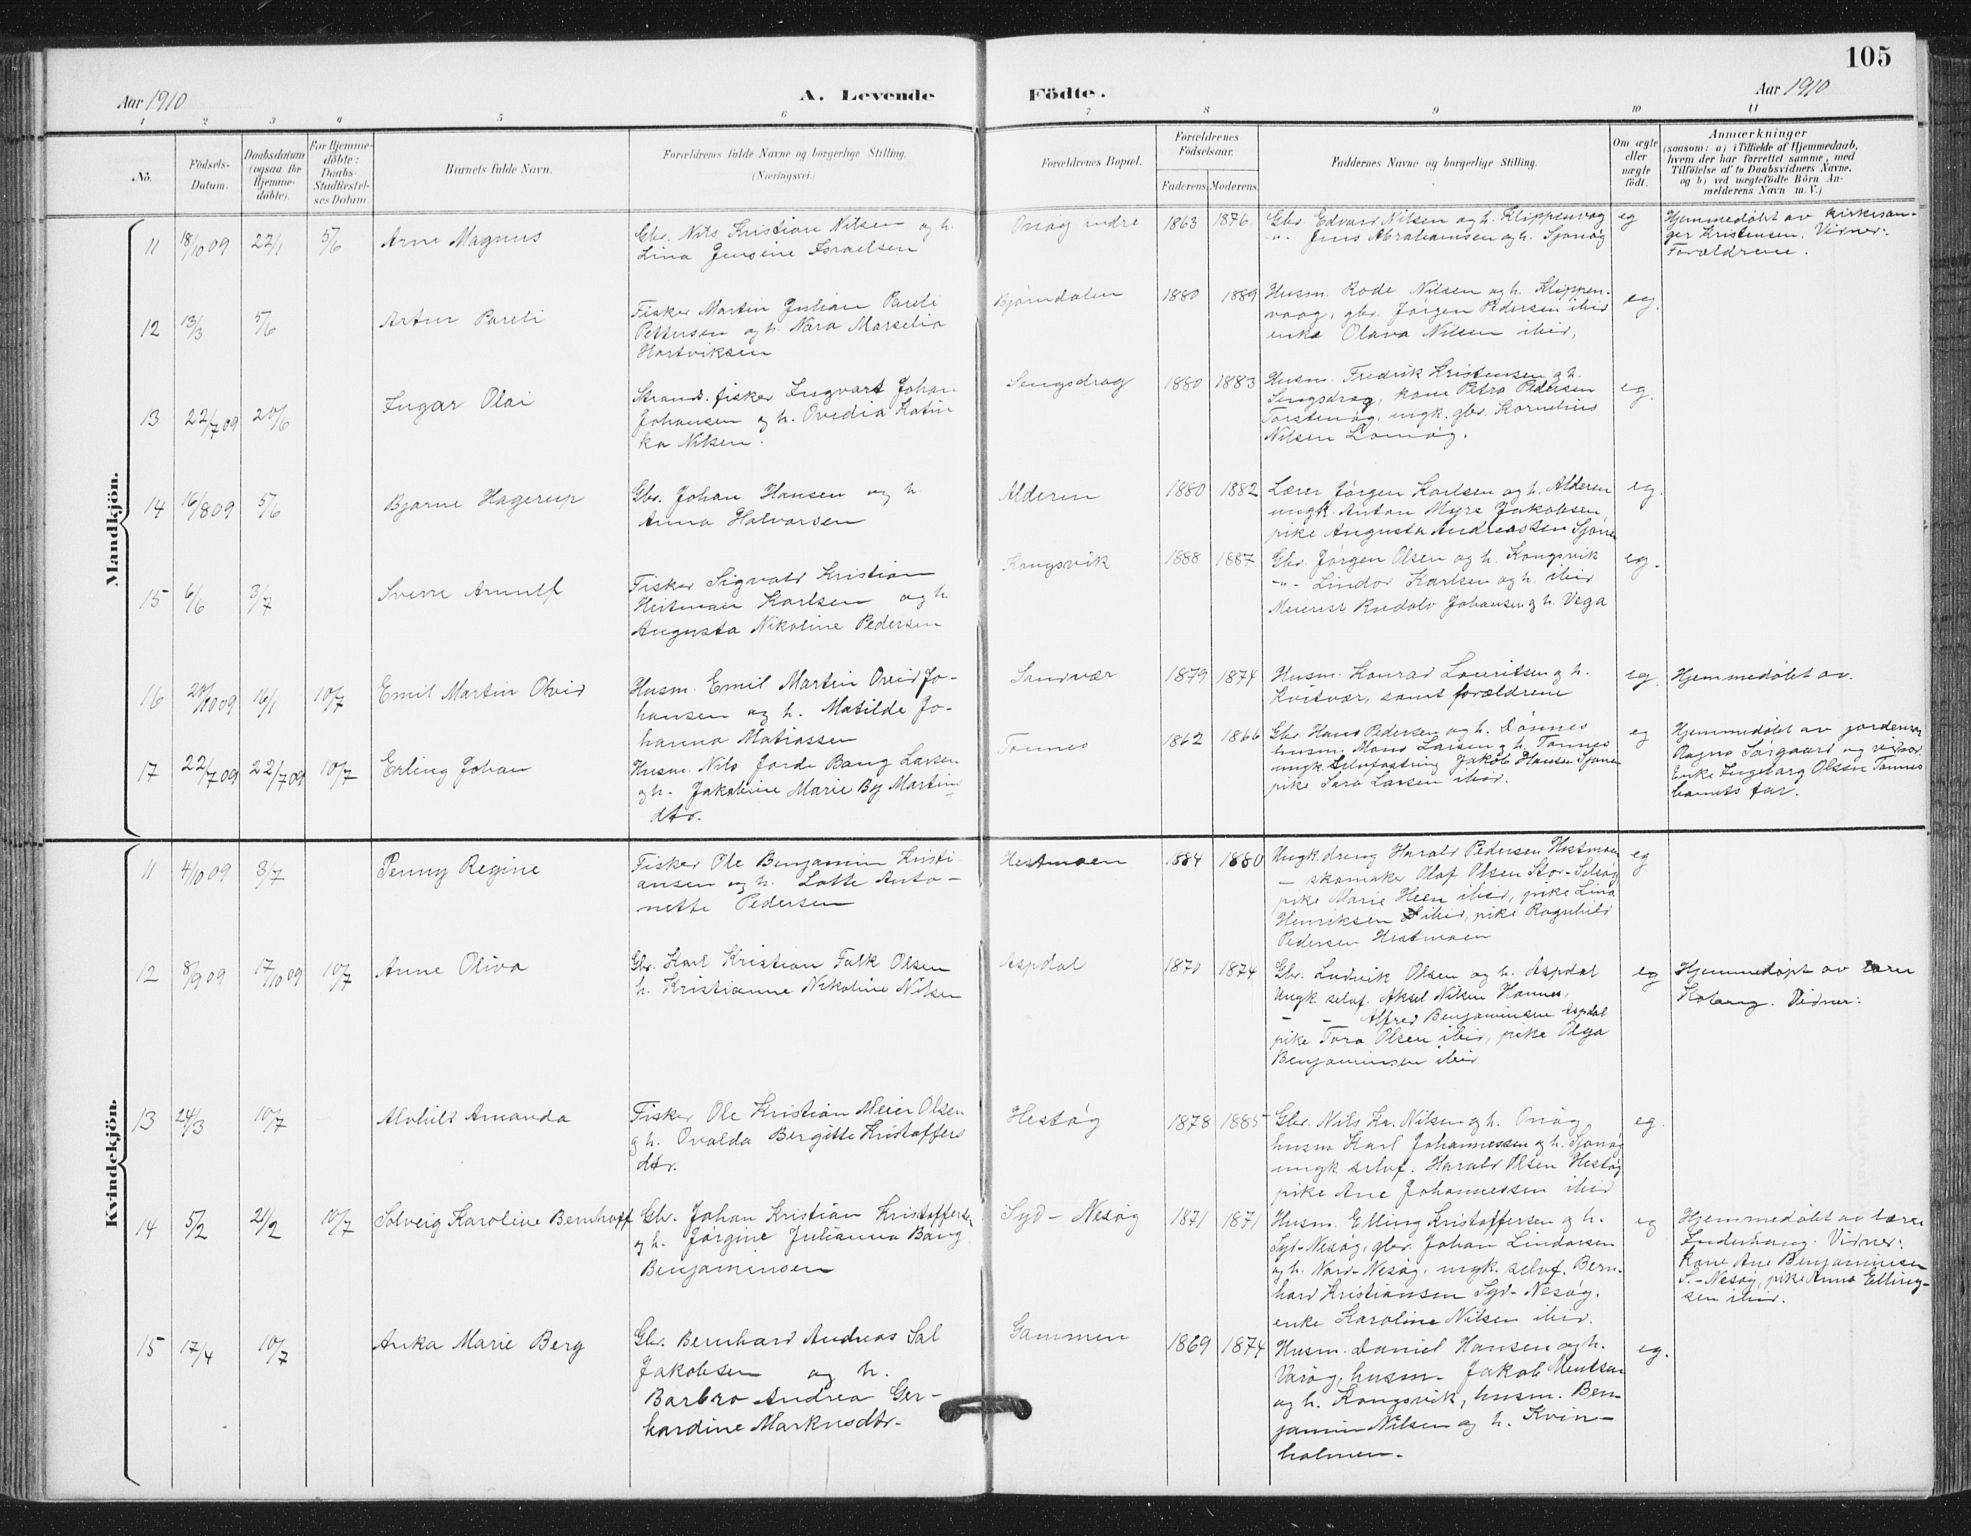 105
Aar 1910
A. Levende Födte.
Aar 1910
1 2 3 4 5 6 7 8 9 10 11
No.
Födsels-
Datum.
Daabsdatum
(ogsaa for
Hjemme-
döbte).
For Hjemme-
döbte:
Daabs-
Stadfæstel-
ses Datum.
Barnets fulde Navn.
Forældrenes fulde Navne og borgerlige Stilling.
(Næringsvei.)
Forældrenes Bopæl.
Forældrenes
Födselsaar.
Faderens. Moderens.
Faddernes Navne og borgerlige Stilling.
Om ægte
eller
uægte
födt.
Anmærkninger
(saasom: a) i Tilfælde af Hjemmedaab,
hvem der har forrettet samme, med
Tilföielse af to Daabsvidners Navne,
og b) ved uægtefödte Börn An-
melderens Navn m.V.)
Mandkjön.
11 18/10 09 22/1 5/6 Arne Magnus
Gbr. Nils Kristian Nilsen og h.
Lina Jensine Israelsen
Onøg indre 1863 1876
Gbr. Edvard Nilsen og h. Klippenvog
"- Jens Abrahamsen og h. Sjonøg
eg
Hjemmedøbt av kirkesan-
ger Kristensen. Vidner:
Forældrene.
12 13/3 5/6 Artur Pareli
Fisker Martin Julian Pareli
Pettersen og h. Nara Marselia
Hartviksen
Bjørndalen 1880 1889
Husm. Rode Nilsen og h. Klippen-
vaag, gbr. Jørgen Pedersen ibid
enke Olava Nilsen ibid.
eg.
13 22/7 09 20/6 Ingar Olai
Strands. fisker Ingvart Johan
Johansen og h. Ovedia Katin
ka Nilsen.
Sengsdrag 1880 1883
Husm. Fredrik Kristensen og h.
Sengsdrag, kone Petra Pedersen
Torstenøg, ungk. gbr. Kornelius
Nilsen Lomøg.
eg.
14 16/8 09 5/6 Bjarne Hagerup
Gbr. Johan Hansen og h.
Anna Halvorsen
Alderen 1880 1882
Lærer Jørgen Karlsen og h. Alderen
ungk. Anton Myre Jakobsen
pike Augusta Andreassen Sjonen
eg.
15 6/6 3/7 Sverre Arnulf
Fisker Sigvald Kristian
Heitman Karlsen og h
Augusta Nikoline Pedersen
Kongsvik 1888 1887
Gbr. Jørgen Olsen og h. Kongsvik
-"- Lindor Karlsen og h. ibid
Meierist Rudolv Johansen og h. Vega
eg.
16 20/10 09 16/1 10/7 Emil Martin Ovid
Husm. Emil Martin Ovid Jo-
hansen og h. Matilde Jo-
hanna Matiassen
Sandvær 1879 1874
Husm. Konrad Lauritsen og h.
Kvitvær, samt forældrene
eg.
Hjemmedøbt av.
17 22/7 09 22/7 09 10/7 Erling Johan
Husm. Nils Jorde Bang Larsen
og h. Jakobine Marie Bg Martin
dtr.
Tonnes 1862 1866
Gbr. Hans Pedersen og h. Dønnes
husm. Mons Larsen og h. Tonnes
ungk. selvfostring Jakob Hansen Sjonen
pike Sara Larsen ibid.
eg
Hjemmedøbt av jordemor
Ragna Sørgaard og vidner
Enke Ingeborg Olsen Tonnes
barnets far.
Kvindekjön.
11 4/10 09 3/7 Penny Regine
Fisker Ole Benjamin Kristi-
ansen og h. Lotte Anto-
nette Pedersen
Hestmoen 1884 1880
Ungk. dreng Harald Pedersen Hestmoen
- skomaker Olaf Olsen Stor-Selsøg
pike Marie Heen ibid, pike Lina
Henriksen ibid, pike Ragnhild
Pedersen Hestmoen
eg
12 8/9 09 17/10 09 10/7 Anne Oliva
Gbr. Karl Kristian Falk Olsen
h. Kristianne Nikoline Nilsen
Aspdal 1870 1874
Gbr. Ludvik Olsen og h. Aspdal
Ungk. selvf. Aksel Nilsen Hannes,
- - Alfred Benjaminsen Aspdal
pike Tora Olsen ibid, pike Olga
Benjaminsen ibid
eg
Hjemmedøpt av lærer
Koberg. Vidner:
13 24/3 10/7 Alvhild Amanda
Fisker Ole Kristian Meier Olsen
og h. Ovalda Bergitte Kristoffers
dtr.
Hestøg 1878 1885
Gbr. Nils Kr. Nilsen og h. Onøg
husm Karl Johannessen og h. Sjonøg
ungk selvf. Harald Olsen Hestøg
pike Ane Johannessen ibid
eg.
14 5/2 21/2 10/7 Solveig Karoline Bernhoff
Gbr. Johan Kristian Kristoffersen
og h. Jørgine Julianna Bang
Benjaminsen
Syd-Nesøg 1871 1871
Husm. Elling Kristoffersen og h.
Syd-Nesøg, gbr. Johan Lindorsen
og h. Nord-Nesøg, ungk. selvf. Bern-
hard Kristiansen Syd-Nesøg.
enke Karoline Nilsen ibid.
eg
Hjemmedøbt av lærer
Enderhaug. Vidner:
Kone Ane Benjaminsen
S.-Nesøg, pike Anna Elling-
sen ibid.
15 17/4 10/7 Anka Marie Berg
Gbr. Bernhard Andreas Sal
Jakobsen og h.
Barbro Andrea Ger-
hardine Markusdtr.
Gammen 1869 1874
Husm. Daniel Hansen og h.
Varøg, husm. Jakob Mentsen
og h. Kongsvik, husm. Ben-
jamin Nilsen og h. Kvin-
holmen.
eg.